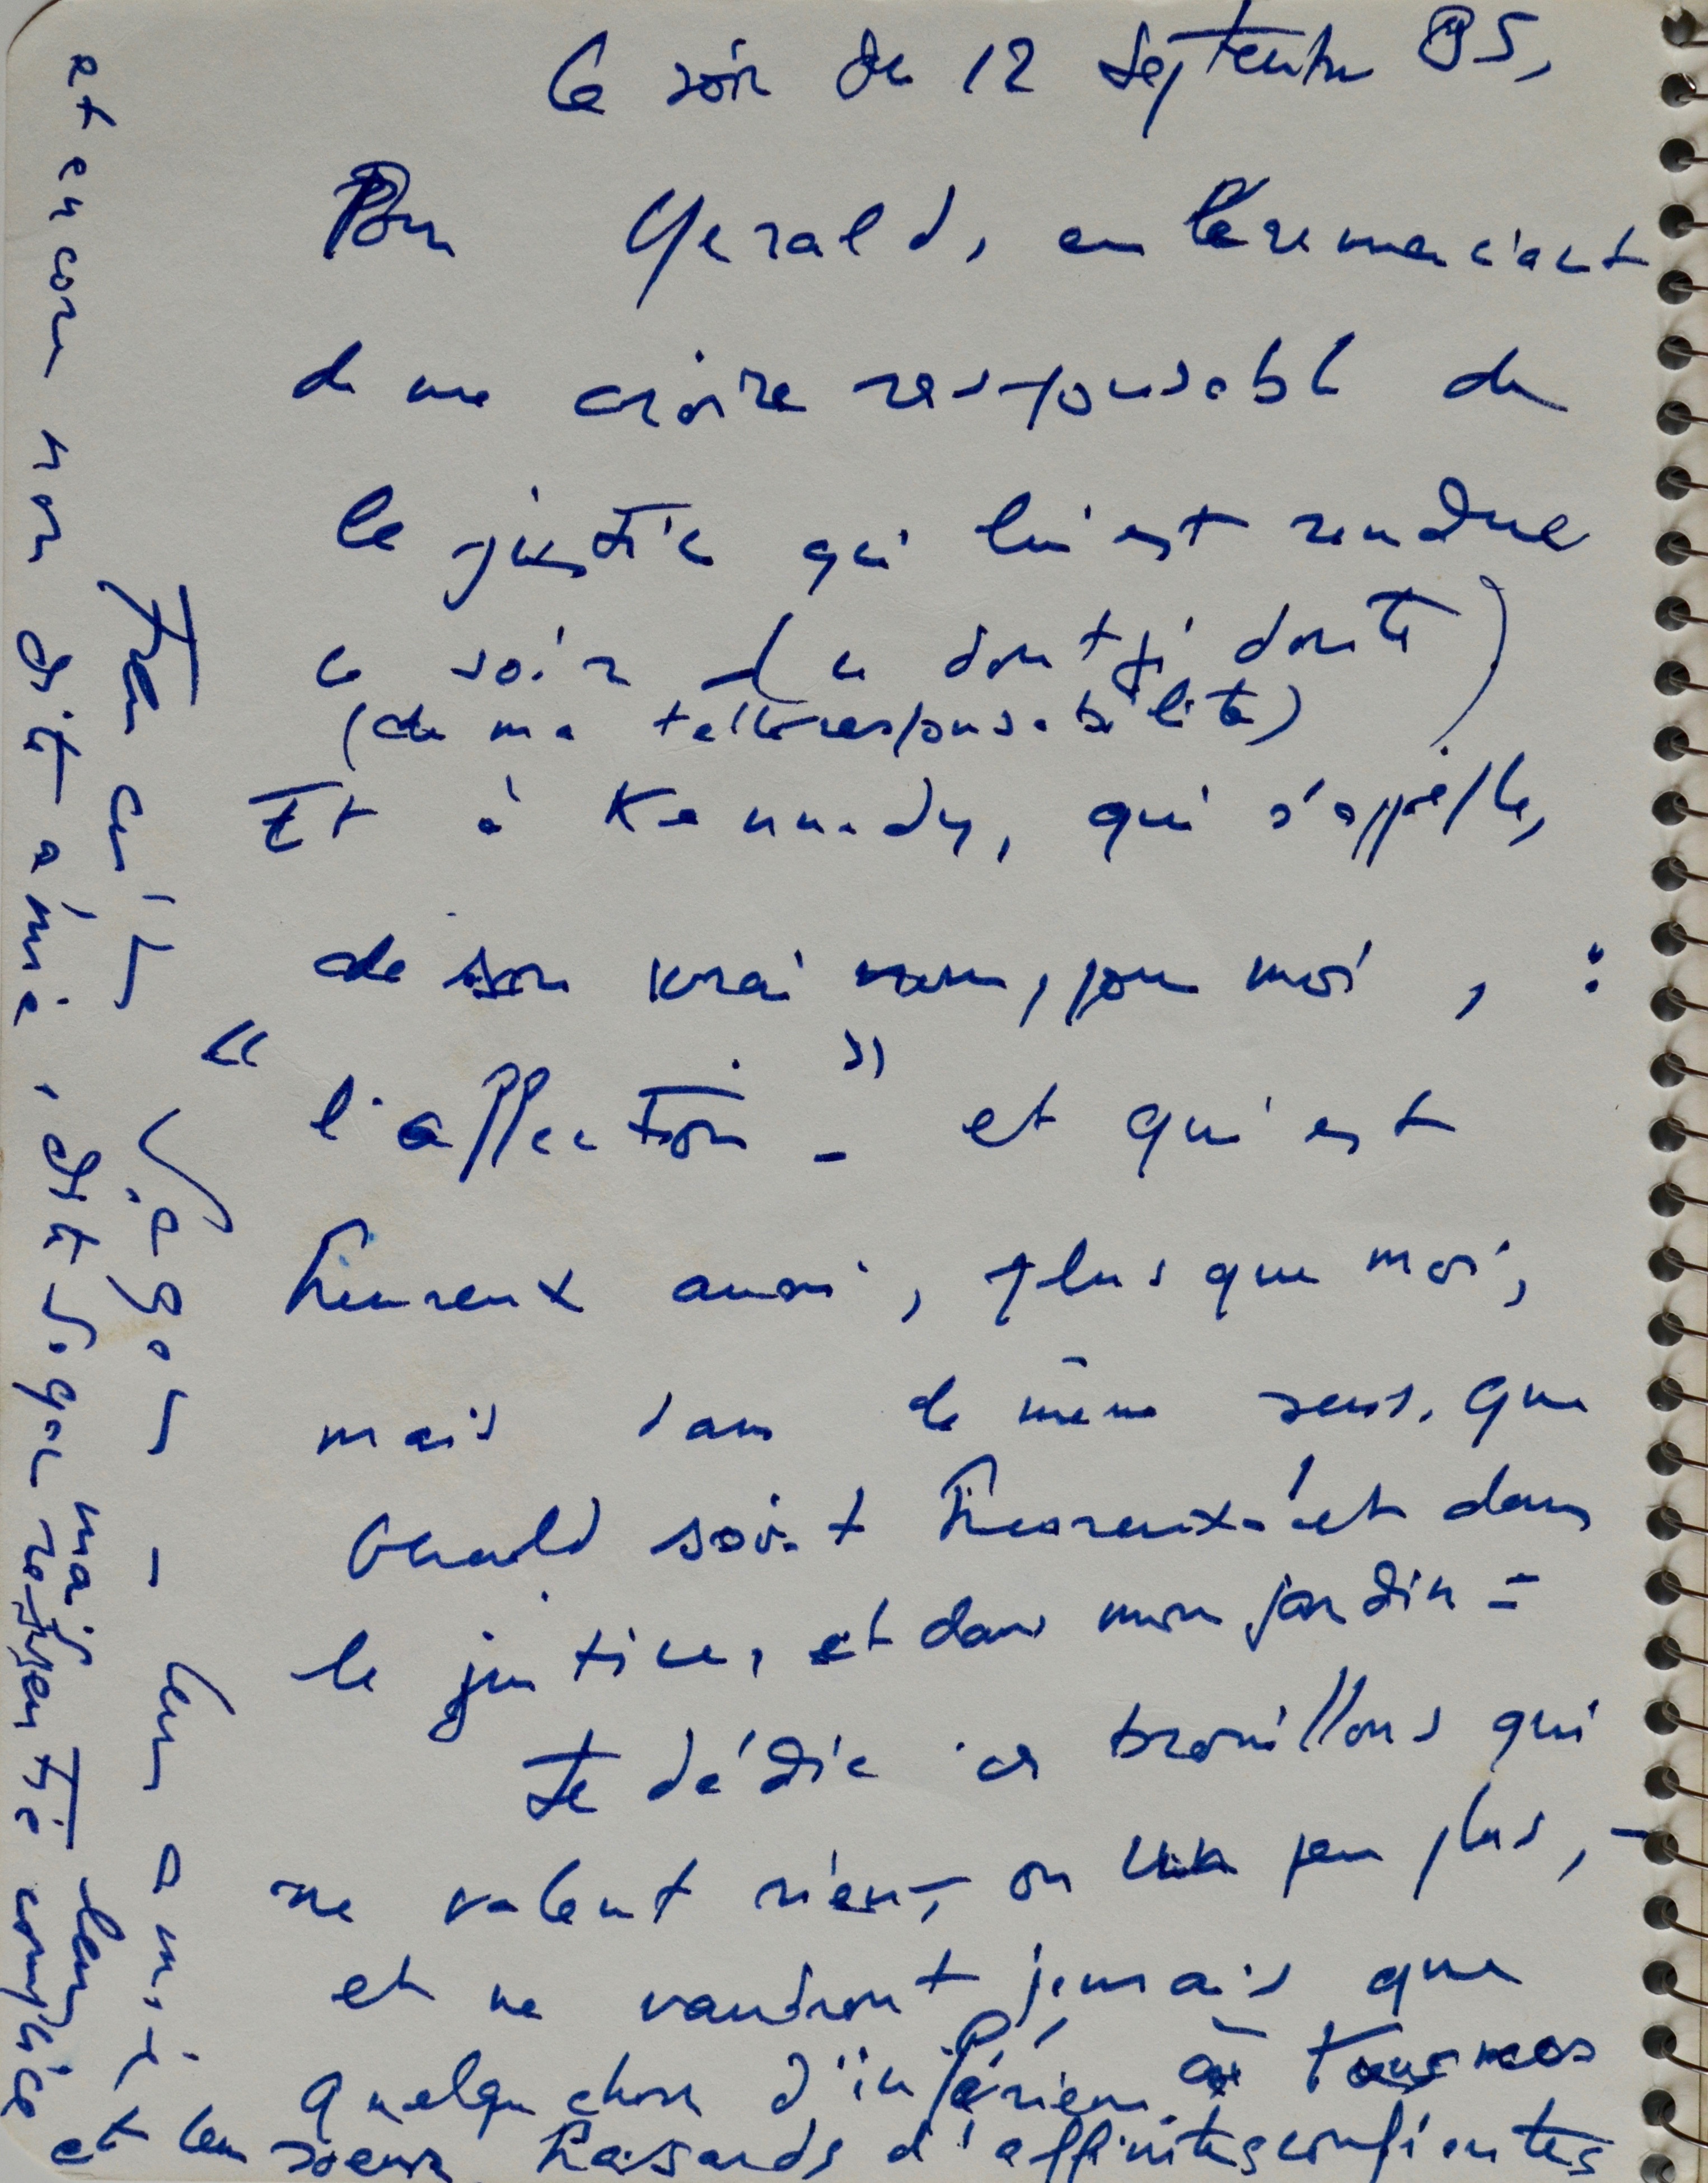 Ce soir du 12 septembre 85,
Pour Gerald, en le remerciant
de me croire responsable de
la justice qui lui est rendue
ce soir (ce dont je doute)
(de ma telle responsabilité)
Et à Kennedy, qui s'appelle,
de son vrai nom, pour moi, :
"l'affection" - et qui est
heureux aussi, plus que moi,
mais dans le même sens, que
Gerald soit heureux - et dans
la justice, et dans mon jardin =
Je dédie ces brouillons qui
ne valent rien, ou un peu plus, -
et ne vaudront jamais que
quelque chose d'inférieur à tous nos
hasards d'affinités confiantes
- leur amie
et leur soeur
et encore non dit aimé, dit
mais leur complice